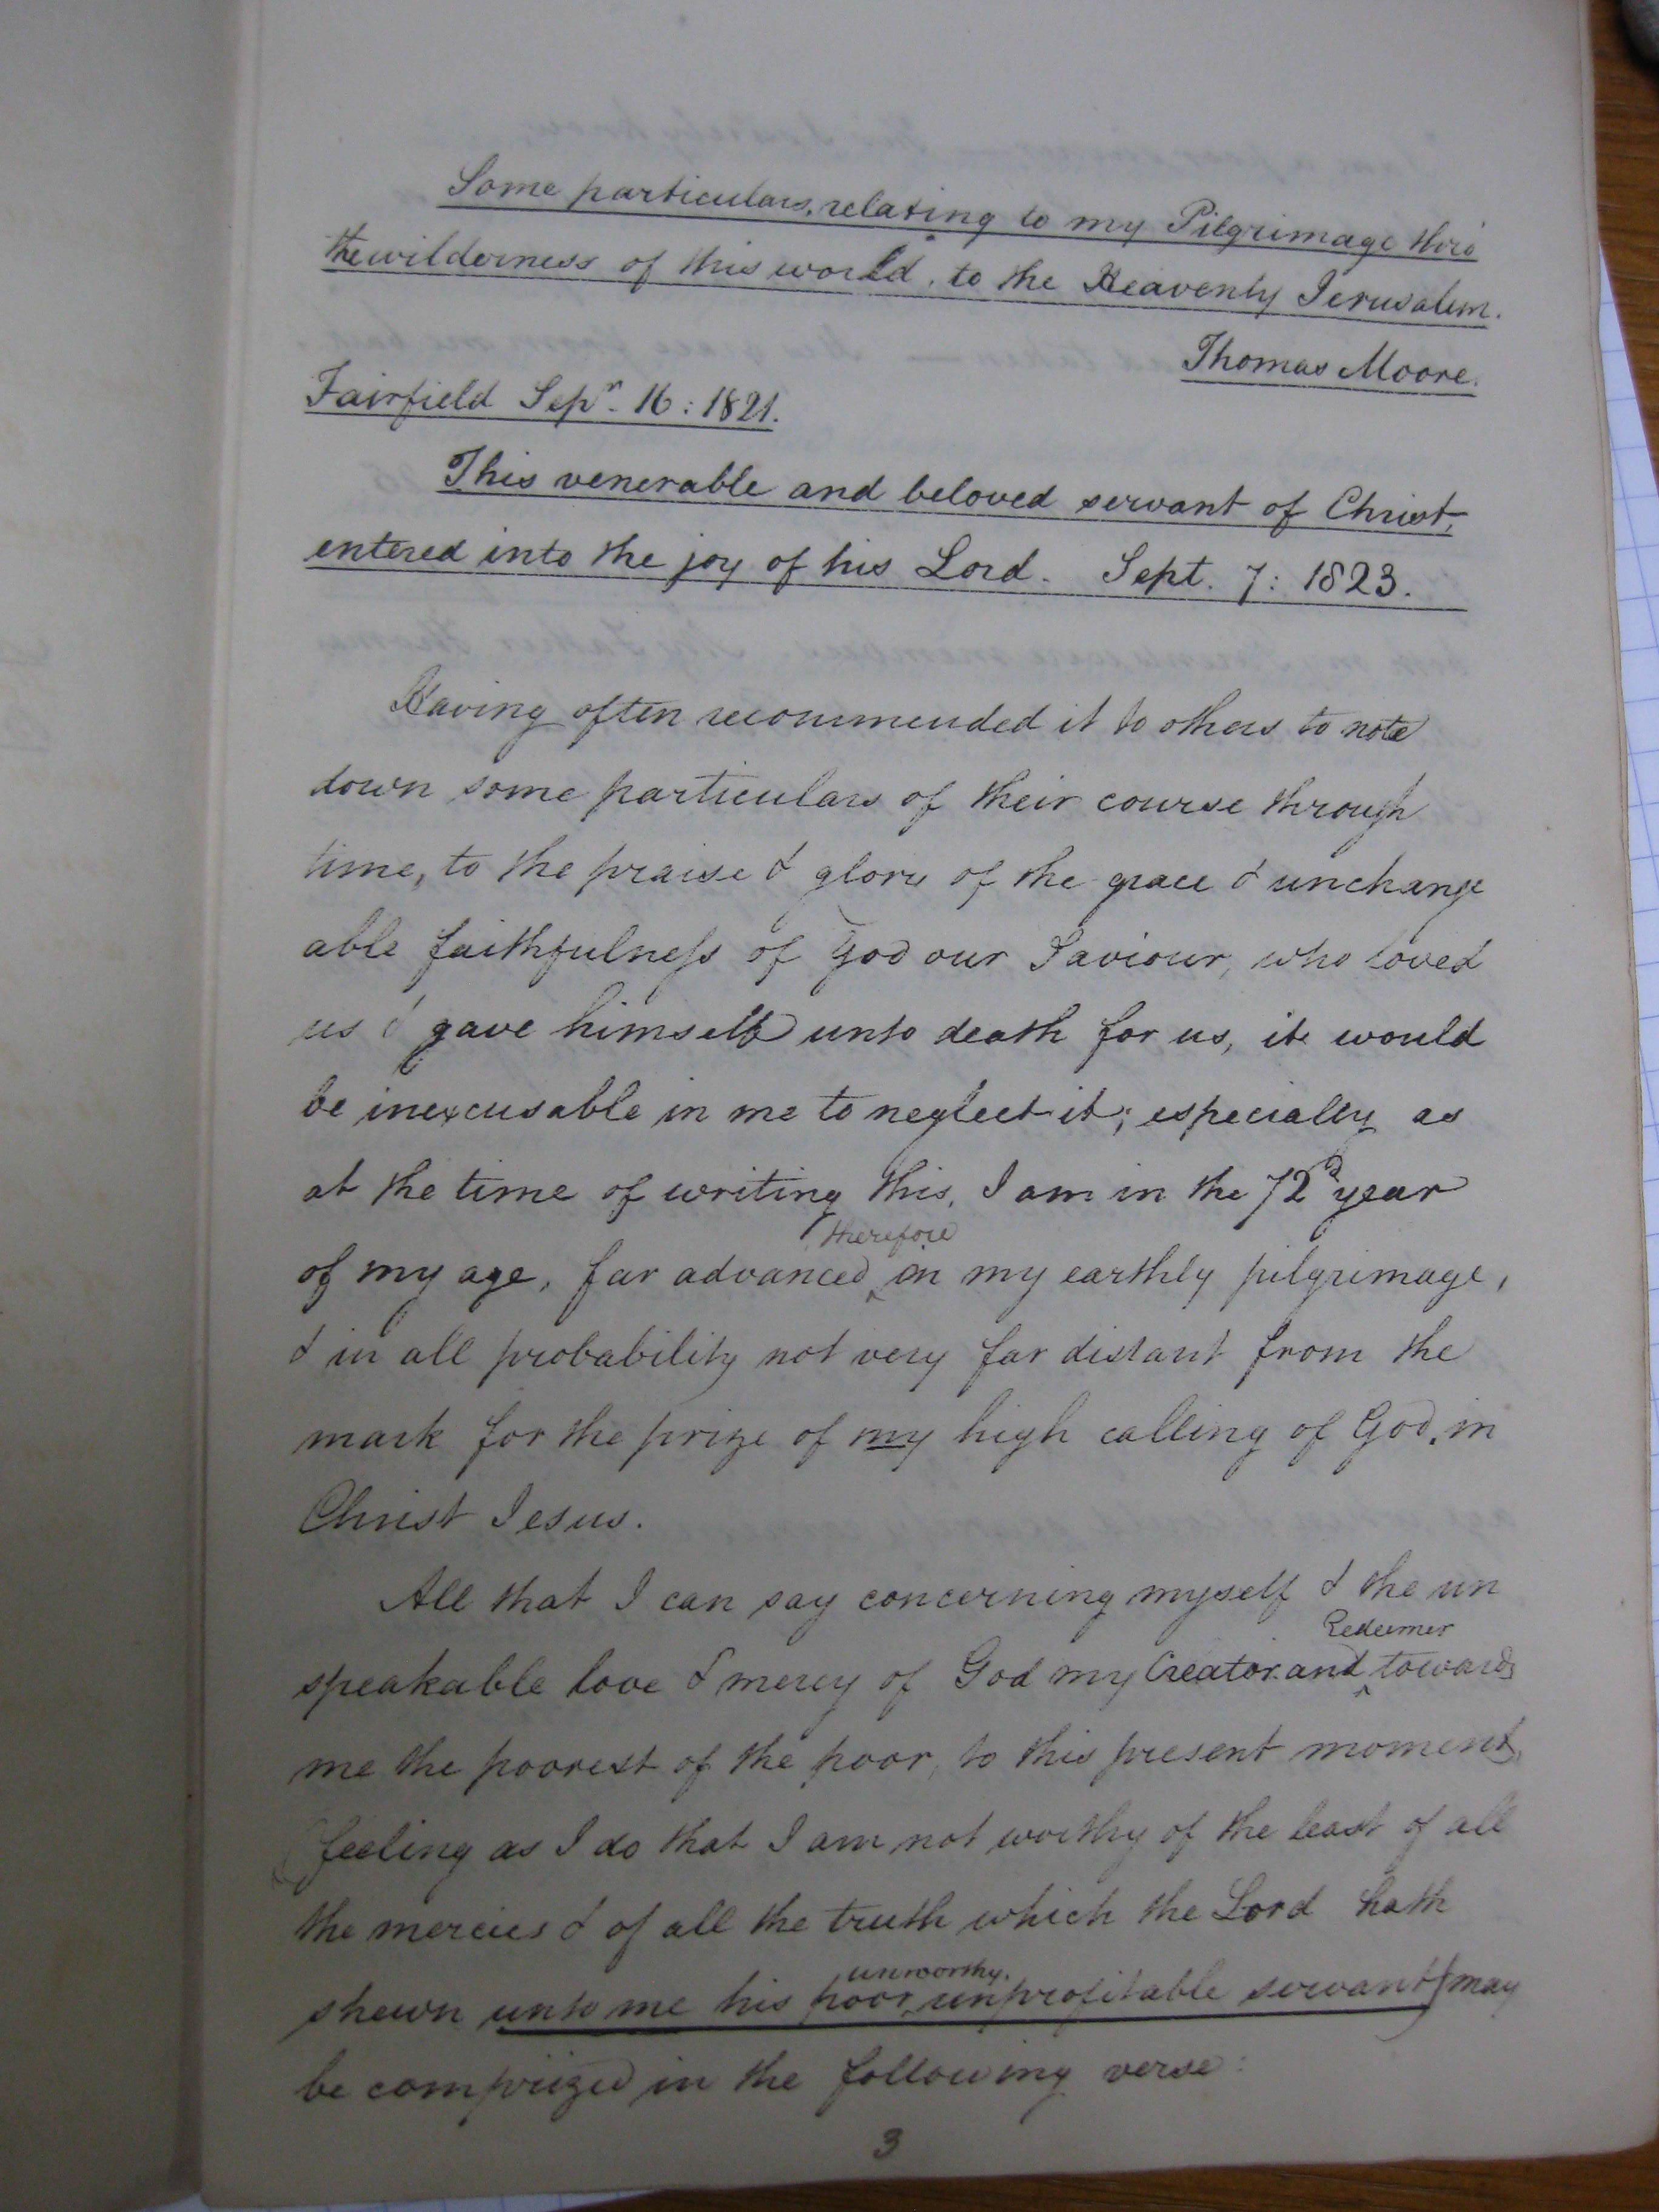 Some particulars, relating to my Pilgrimage thro'
the wilderness of this world, to the Heavenly Jerusalem.
Thomas Moore.
Fairfield Sepr. 16: 1821.
This venerable and beloved servant of Christ,
entered into the joy of his Lord. Sept. 7: 1823.
Having often recommended it to others to note
down some particulars of their course through
time, to the praise & glory of the grace & unchange
able faithfulness of God our Saviour, who loved
us & gave himself unto death for us, it would
be inexcusable in me to neglect it; especially as
at the time of writing this, I am in the 72d year
therefore
of my age, far advanced ‸ in my earthly pilgrimage,
& in all probability not very far distant from the
mark for the prize of my high calling of God, in
Christ Jesus.
All that I can say concerning myself & the un
Redeemer
speakable love & mercy of God my Creator and ‸ towards
me the poorest of the poor, to this present moment,
(feeling as I do that I am not worthy of the least of all
the mercies & of all the truth which the Lord hath
unworthy.
shewn unto me his poor ‸ unprofitable servant) may
be comprized in the following verse:
3